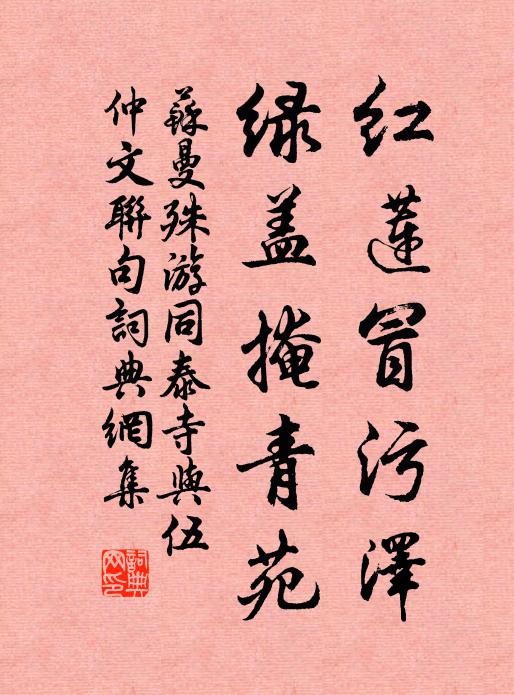 红蓮冒污澤
绿盖掩青苑
蘇曼殊游同泰寺與伍
仲文聯句詞典網集
詞典网印